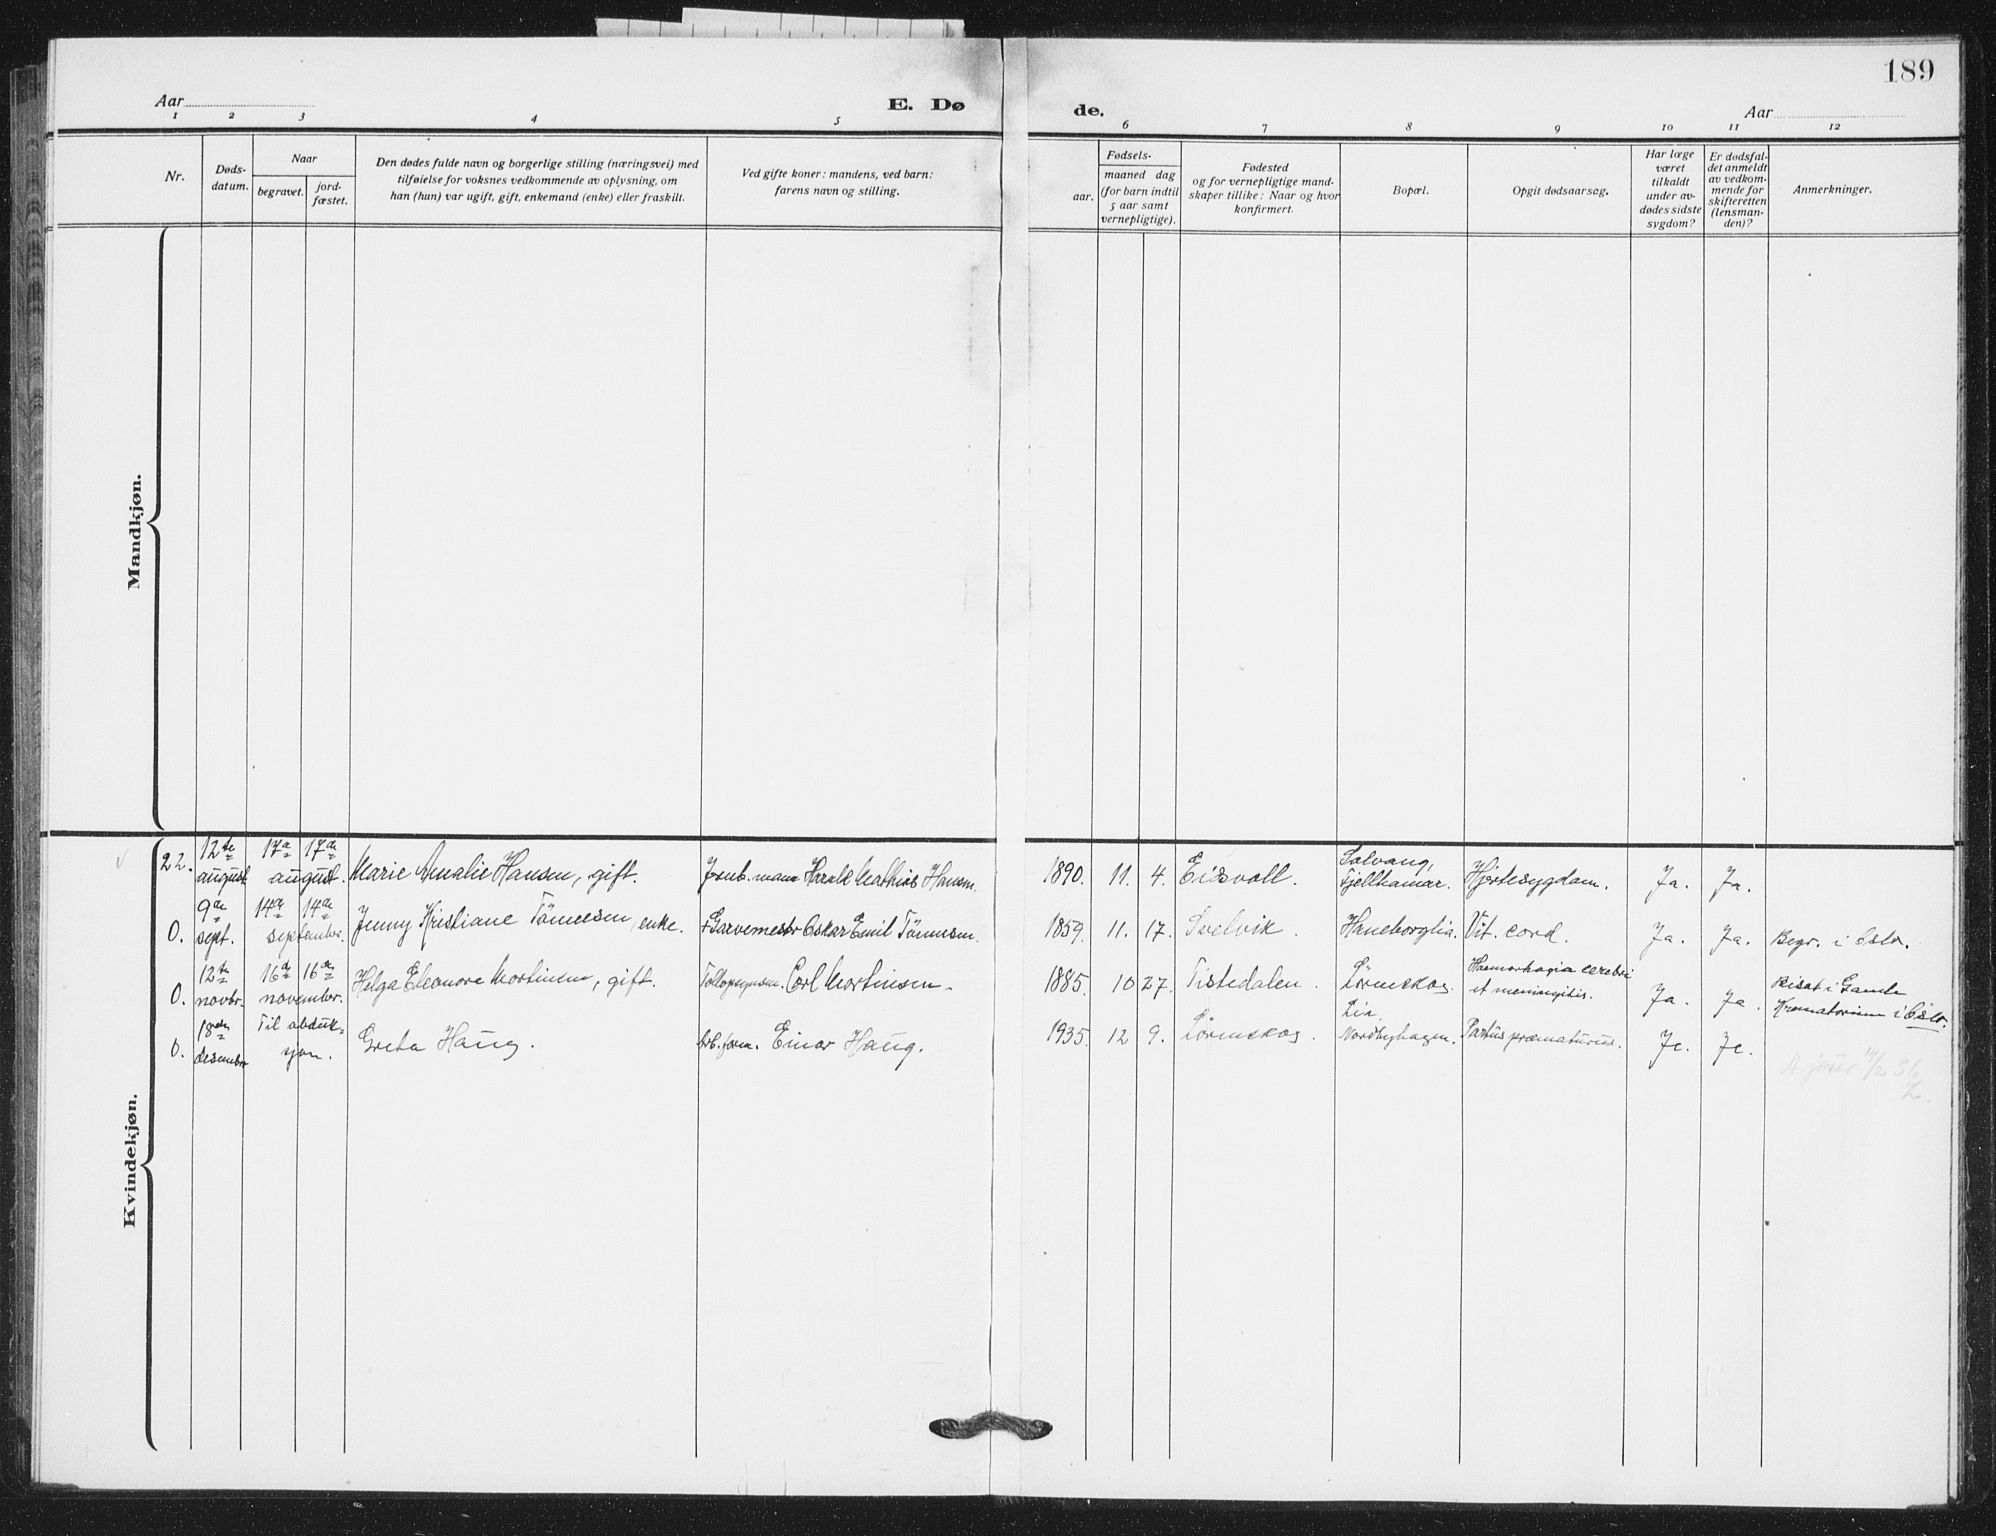 189
Aar
E. Dø
de.
Aar
1 2 3 4 5 6 7 8 9 10 11 12
Nr.
Døds-
datum.
Naar
begravet.
jord-
fæstet.
Den dødes fulde navn og borgerlige stilling (næringsvei) med
tilføielse for voksnes vedkommende av oplysning, om
han (hun) var ugift, gift, enkemand (enke) eller fraskilt.
Ved gifte koner: mandens, ved barn:
farens navn og stilling.
Fødsels-
aar.
maaned dag
(for barn indtil
5 aar samt
vernepligtige).
Fødested
og for vernepligtige mand-
skaper tillike: Naar og hvor
konfirmert.
Bopæl.
Opgit dødsaarsag.
Har læge
været
tilkaldt
under av-
dødes sidste
sygdom?
Er dødsfal-
det anmeldt
av vedkom-
mende for
skifteretten
(lensman-
den)?
Anmerkninger.
Mandkjøn.
Kvindekjøn.
22. 12te august 17de 17de august. Marie Amalie Hansen, gift. Jernb.mann Harald Mathias Hansen. 1890. 11. 4. Eidsvoll. Solvang, Fjellhamar. Hjertesygdom. Ja. Ja.
0. 9de sept. 14de 14de september. Jenny Kristiane Tönnesen, enke. Garvemester Oskar Emil Tönnesen. 1859. 11. 17. Svelvik. Haneborglia. Vit. cord. Ja. Ja. Begr. i Oslo.
0. 12te novbr. 16de 16de november. Helga Eleonore Mortinsen, gift. Carl Mortinsen. 1885. 10 27. Tistedalen. Lørenskog. Haemorhagia cerebri et meningitis. Ja. Ja. Bisat i Gamle Krematorium i Oslo.
0. 18de desember Til abduksjon. Greta Haug. arb.form. Einar Haug. 1935. 12 9. Lørenskog. Lia, Nordbyhagen. Partus præmaturus. Ja. Ja.